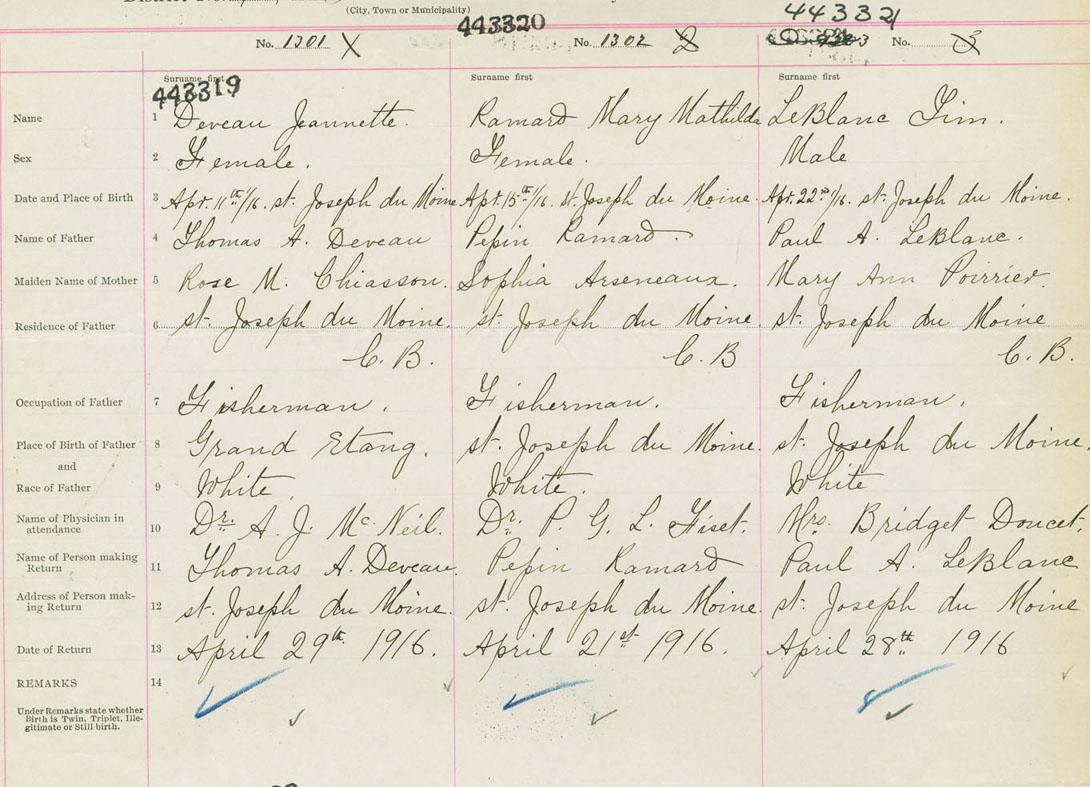 (City, Town or Municipality)
443320
44332
No. 1301
No. 1302 2
No. 3
Surname first
Surname first
Surname first
443319
Name 1 Deveau Jeannette. Ramard Mary Mathilda LeBlanc Jim.
Sex 2 Female. Female. Male
Date and Place of Birth 3 Apr. 11th/16. st. Joseph du Moine Apr. 15th/16. St. Joseph du Moine. Apr. 22nd/16. st. Joseph du Moine.
Name of Father 4 Thomas A. Deveau Pepin Ramard. Paul A. LeBlanc.
Maiden Name of Mother 5 Rose M. Chiasson. Sophia Arseneaux. Mary Ann Poirrier.
Residence of Father 6 st. Joseph du Moine. st. Joseph du Moine. st. Joseph du Moine
C. B. C. B C. B.
Occupation of Father 7 Fisherman. Fisherman. Fisherman.
Place of Birth of Father 8 Grand Etang. st. Joseph du Moine. st. Joseph du Moine.
and
Race of Father 9 White. White. White
Name of Physician in
attendance 10 Dr. A. J. McNeil. Dr. P. G. L. Fiset. Mrs. Bridget Doucet.
Name of Person making
Return 11 Thomas A. Deveau. Pepin Ramard Paul A. LeBlanc
Address of Person mak-
ing Return 12 st. Joseph du Moine. st. Joseph du Moine. st. Joseph du Moine
Date of Return 13 April 29th. 1916. April 21st 1916. April 28th 1916
REMARKS 14
Under Remarks state whether
Birth is Twin, Triplet, Ille-
gitimate or Still birth.